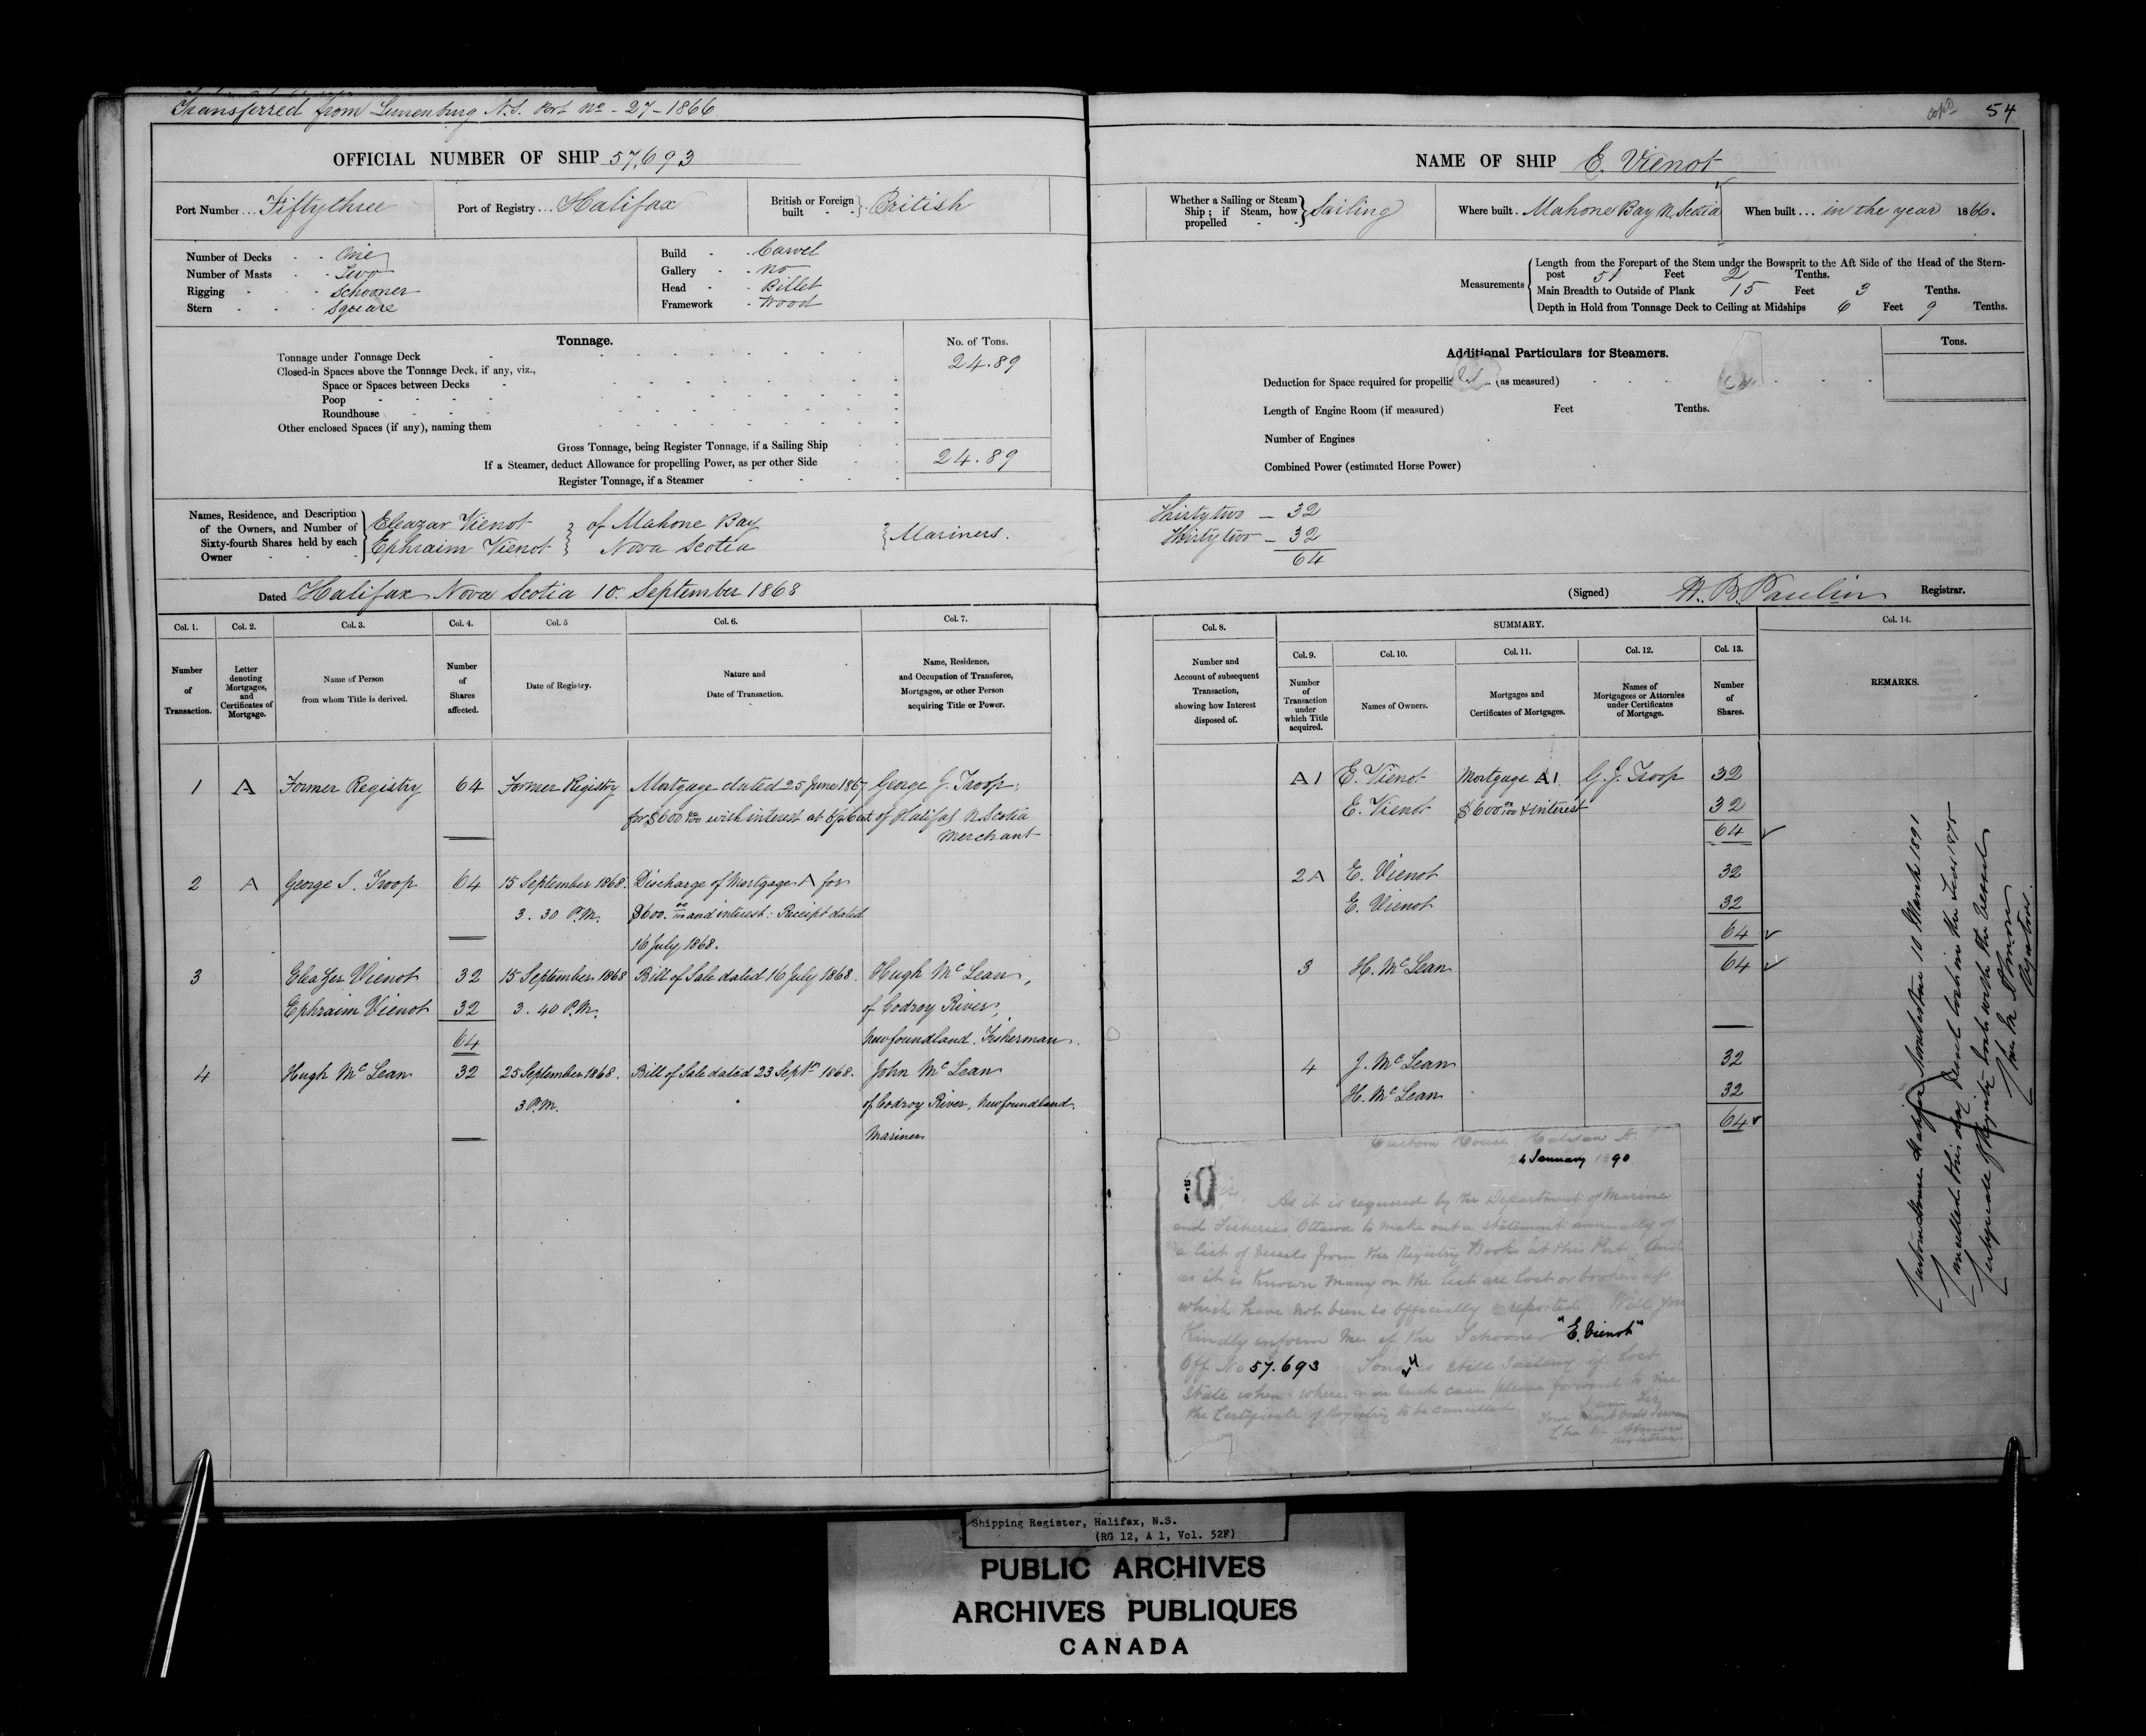 Transferred from Lunenburg N.S. Port No - 27 - 1866
OFFICIAL NUMBER OF SHIP 57,693
Port Number ... Fiftythree
Port of Registry ... Halifax
British or Foreign built } British
Number of Decks - - One
Number of Masts - - Two
Rigging - - Schooner
Stern - - - Square
Build - - Carvel
Gallery - - No
Head - - Billet
Framework - Wood
Tonnage.
No. of Tons.
Tonnage under Tonnage Deck - 24.89
Closed-in Spaces above the Tonnage Deck, if any, viz.,
Space or Spaces between Decks -
Poop - - - -
Roundhouse - - -
Other enclosed Spaces (if any), naming them
Gross Tonnage, being Register Tonnage, if a Sailing Ship
If a Steamer, deduct Allowance for propelling Power, as per other Side 24.89
Register Tonnage, if a Steamer
Names, Residence, and Description
of the Owners, and Number of
Sixty-fourth Shares held by each
Owner
Eleazar Vienot } of Mahone Bay } Mariners.
Ephraim Vienot } Nova Scotia
Dated Halifax Nova Scotia 10. September 1868
Col. 1. Col. 2. Col. 3. Col. 4. Col. 5 Col. 6. Col. 7.
Number of Transaction.
Letter denoting Mortgages, and Certificates of Mortgage.
Name of Person from whom Title is derived.
Number of Shares affected.
Date of Registry.
Nature and Date of Transaction.
Name, Residence, and Occupation of Transferee, Mortgagee, or other Person acquiring Title or Power.
1 A Former Registry 64 Former Registry Mortgage dated 25 June 1867 George J. Troop,
for $600 00/100 with interest at 6 p Cent of Halifax N. Scotia
Merchant
2 A George J. Troop 64 15 September 1868. Discharge of Mortgage A for
3. 30 P.M. $600. 00/100 and interest: Receipt dated
16 July, 1868.
3 Eleazer Vienot 32 15 September 1868 Bill of Sale dated 16 July 1868. Hugh McLean,
Ephraim Vienot 32 3. 40 P.M. of Codroy River,
64 Newfoundland. Fisherman.
4 Hugh McLean 32 25 September 1868. Bill of Sale dated 23 Septr 1868. John McLean
3 P.M. of Codroy River, Newfoundland.
Mariner
54
NAME OF SHIP E. Vienot
Whether a Sailing or Steam Ship; if Steam, how propelled } Sailing
Where built. Mahone Bay N. Scotia
When built ... in the year 1866.
Measurements
Length from the Forepart of the Stem under the Bowsprit to the Aft Side of the Head of the Stern-
post 51 Feet 2 Tenths.
Main Breadth to Outside of Plank 15 Feet 3 Tenths.
Depth in Hold from Tonnage Deck to Ceiling at Midships 6 Feet 9 Tenths.
Additional Particulars for Steamers.
Tons.
Deduction for Space required for propelli (as measured)
Length of Engine Room (if measured) Feet Tenths.
Number of Engines
Combined Power (estimated Horse Power)
Thirty two - 32
Thirty two - 32
64
(Signed) H. B. Paulin Registrar.
Col. 8. SUMMARY. Col. 14.
Col. 9. Col. 10. Col. 11. Col. 12. Col. 13.
Number and Account of subsequent Transaction, showing how Interest disposed of.
Number of Transaction under which Title acquired.
Names of Owners.
Mortgages and Certificates of Mortgages.
Names of Mortgagees or Attornies under Certificates of Mortgage.
Number of Shares.
REMARKS.
A1 E. Vienot Mortgage A1 G. J. Troop 32
E. Vienot $600 00/100 & interest 32
64
2A E. Vienot 32
E. Vienot 32
64
3 H. McLean 64
4 J. McLean 32
H. McLean 32
64
Custom House Halifax 10 March 1891
Cancelled this day Vessel lost in the Year 1875
Certificate of Registry lost with the Vessel
Chas M Almon
Registrar.
Custom House, Halifax N.
24 January 1890
Sir, As it is required by the Department of Marine
and Fisheries Ottawa to make out a statement annually of
a list of Vessels from the Registry Books at this Port. And
as it is known many on the list are lost or broken up
which have not been so officially reported. Will you
Kindly inform me if the Schooner "E. Vienot"
Off No 57.693 Tons is still sailing if lost
state when & where & in such case please forward to me
the Certificate of Registry to be cancelled.
I am Sir
Your Most Obdt Servan
Chas M. Almon
Registrar
Shipping Register, Halifax, N.S.
(RG 12, A 1, Vol. 52F)
PUBLIC ARCHIVES
ARCHIVES PUBLIQUES
CANADA